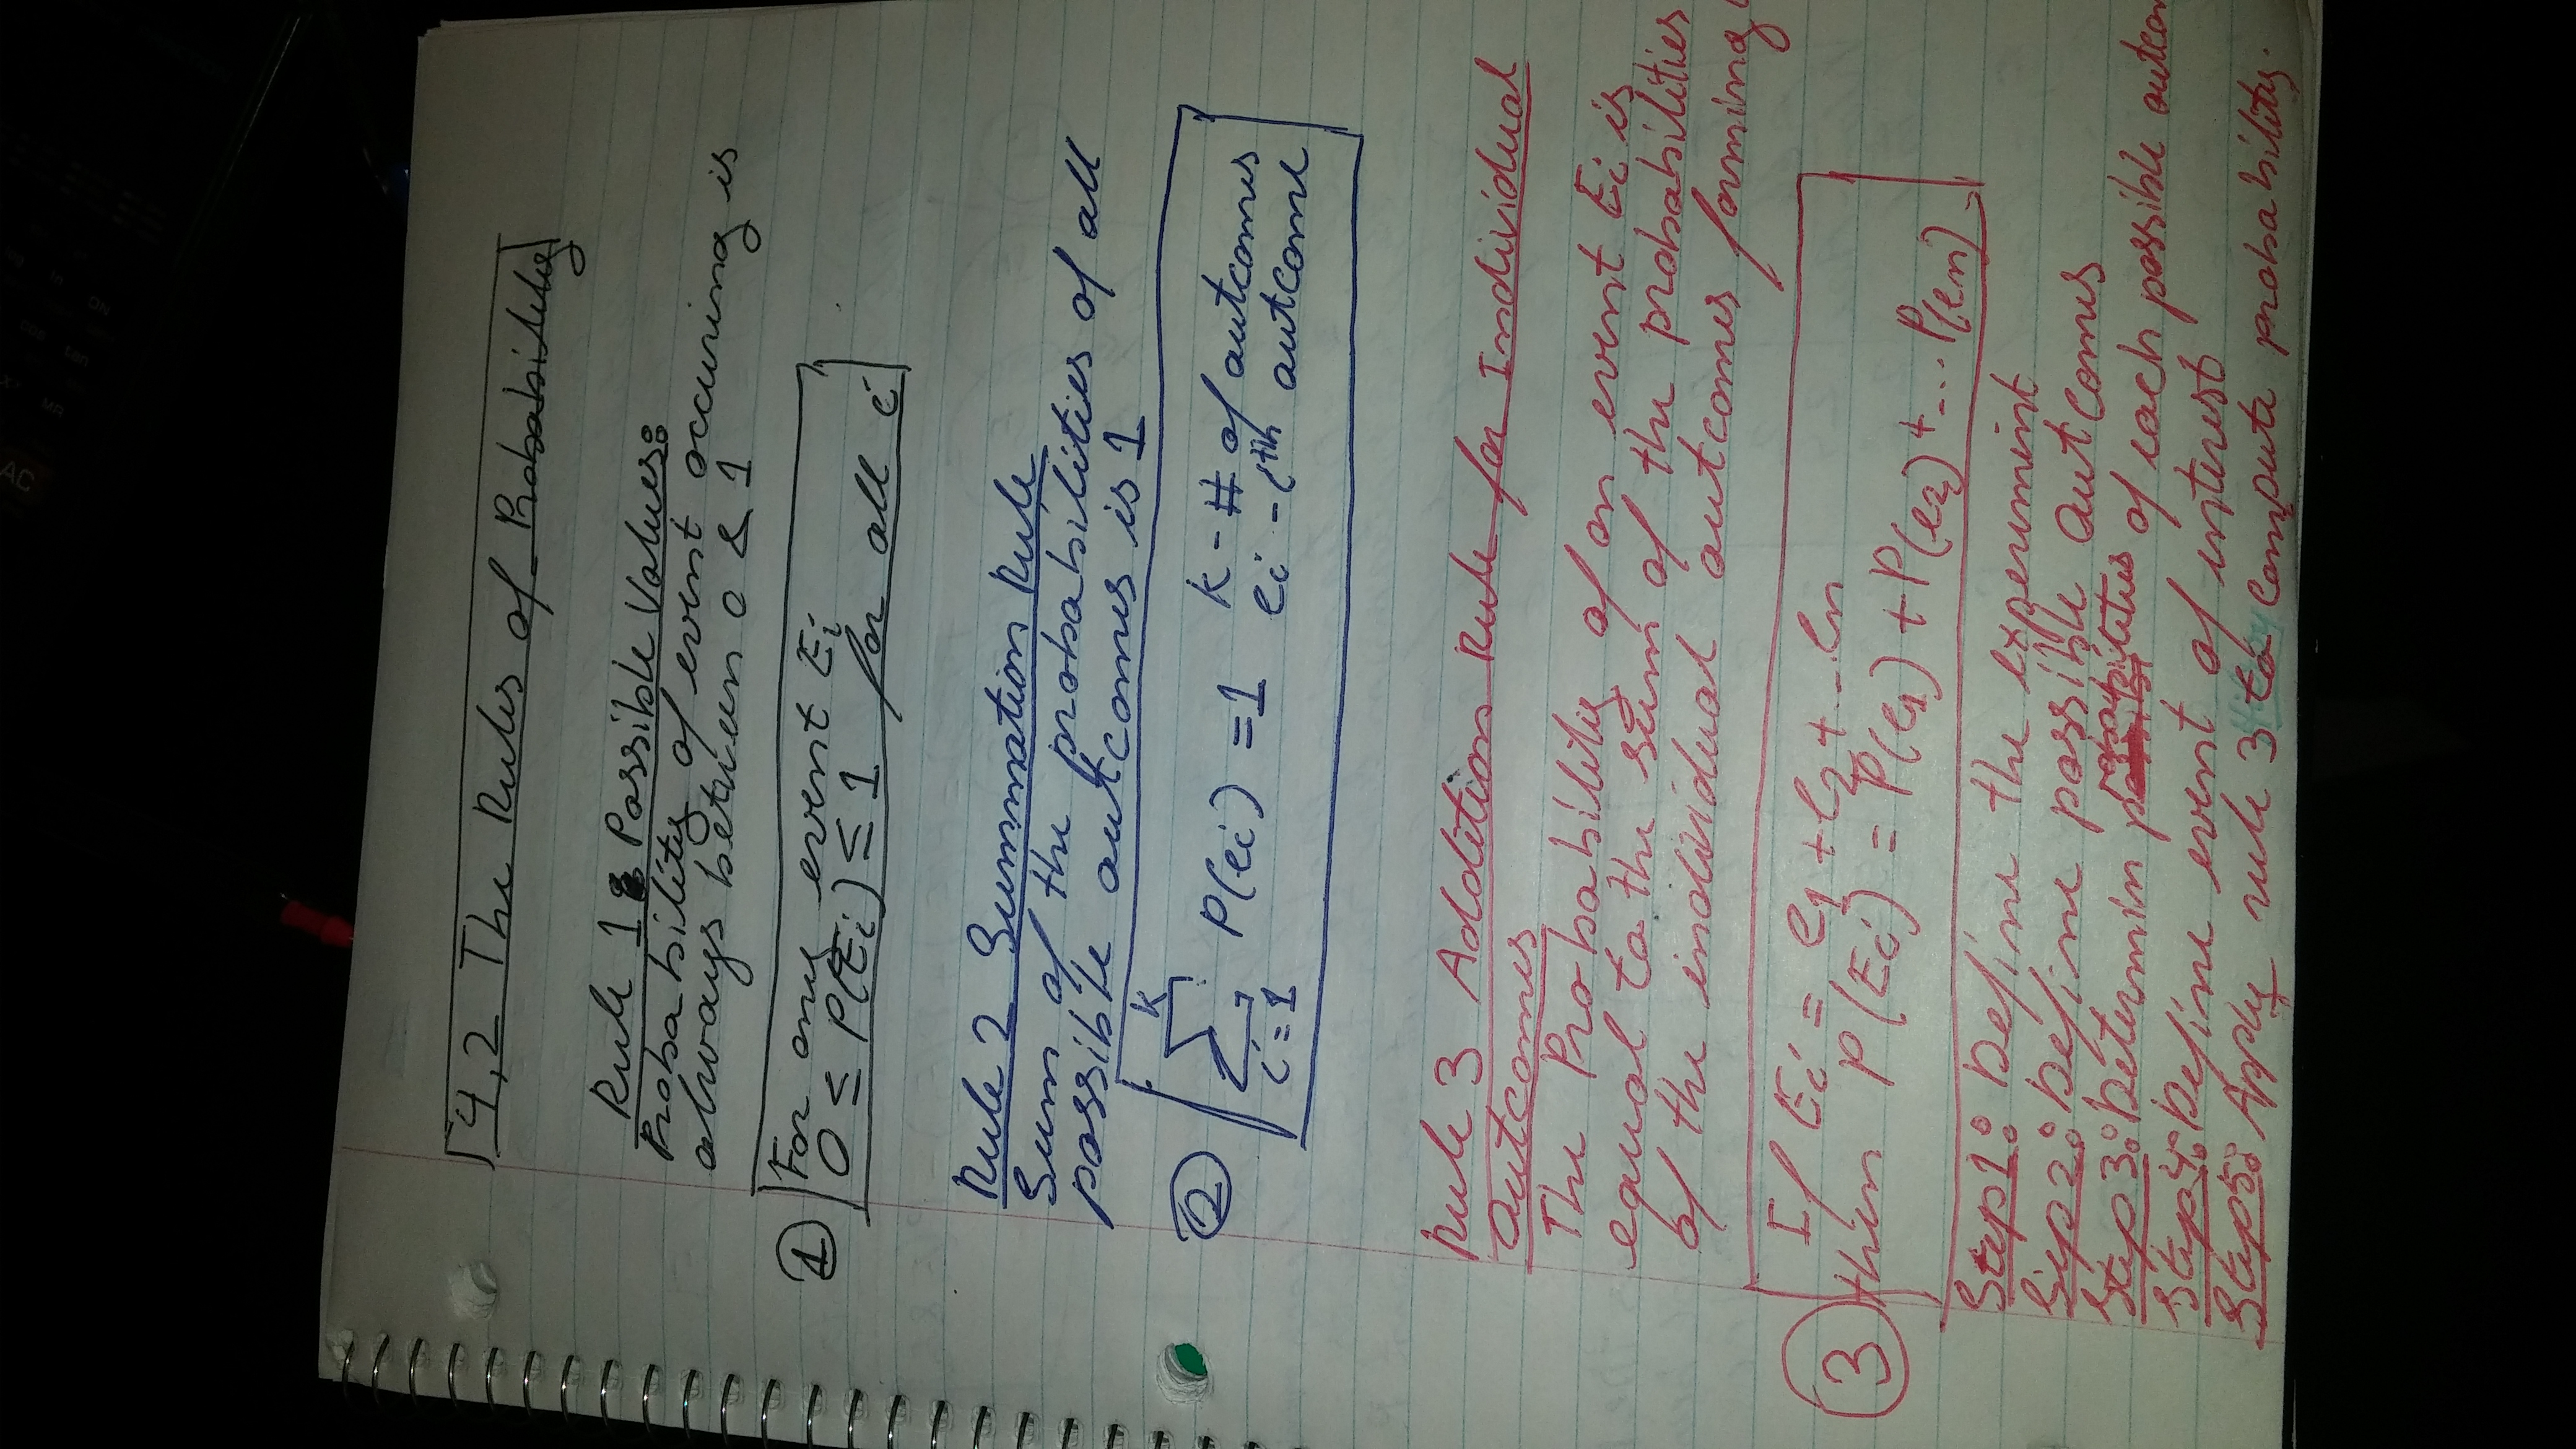 4,2 The Rules of Probability
Rule 1: Possible Values:
Probability of event occuring is
always between 0 & 1
For any event Ei
① 0 ≤ P(Ei) ≤ 1 for all i
Rule 2 Summation Rule
Sum of the probabilities of all
possible outcomes is 1
② k∑i=1 P(ei) = 1 k - # of outcomes
ei - ith outcome
Rule 3 Addition Rule for Individual
Outcomes
The Probability of an event Ei is
equal to the sum of the probabilities
of the individual outcomes forming
If Ei = e1 + e2 + ... en
③ then P(Ei) = P(e1) + P(e2) + ... P(en)
Step1: Define the experiment
Step2: Define possible outcomes
Step3: Determin of each possible outcom
Step4: Define event of interest
Step5: Apply rule 3 to compute probability.
AC
MR
tan
ON
in